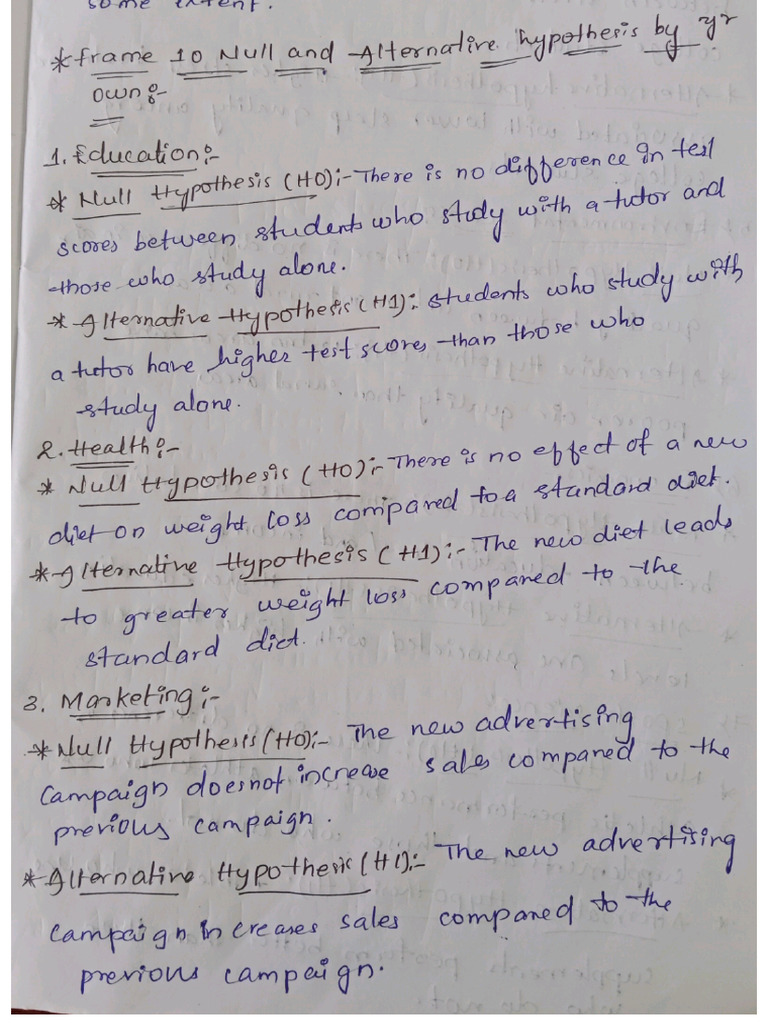 some extent.
* Frame 10 Null and Alternative hypothesis by yr
own:-
1. Education:-
* Null Hypothesis (H0):- There is no difference in test
scores between students who study with a tutor and
those who study alone.
* Alternative Hypothesis (H1): students who study with
a tutor have higher test scores than those who
study alone.
2. Health:-
* Null Hypothesis (H0):- There is no effect of a new
diet on weight loss compared to a standard diet.
* Alternative Hypothesis (H1):- The new diet leads
to greater weight loss compared to the
standard diet.
3. Marketing:-
* Null Hypothesis (H0):- The new advertising
campaign does not increase sales compared to the
previous campaign.
* Alternative Hypothesis (H1):- The new advertising
campaign increases sales compared to the
previous campaign.